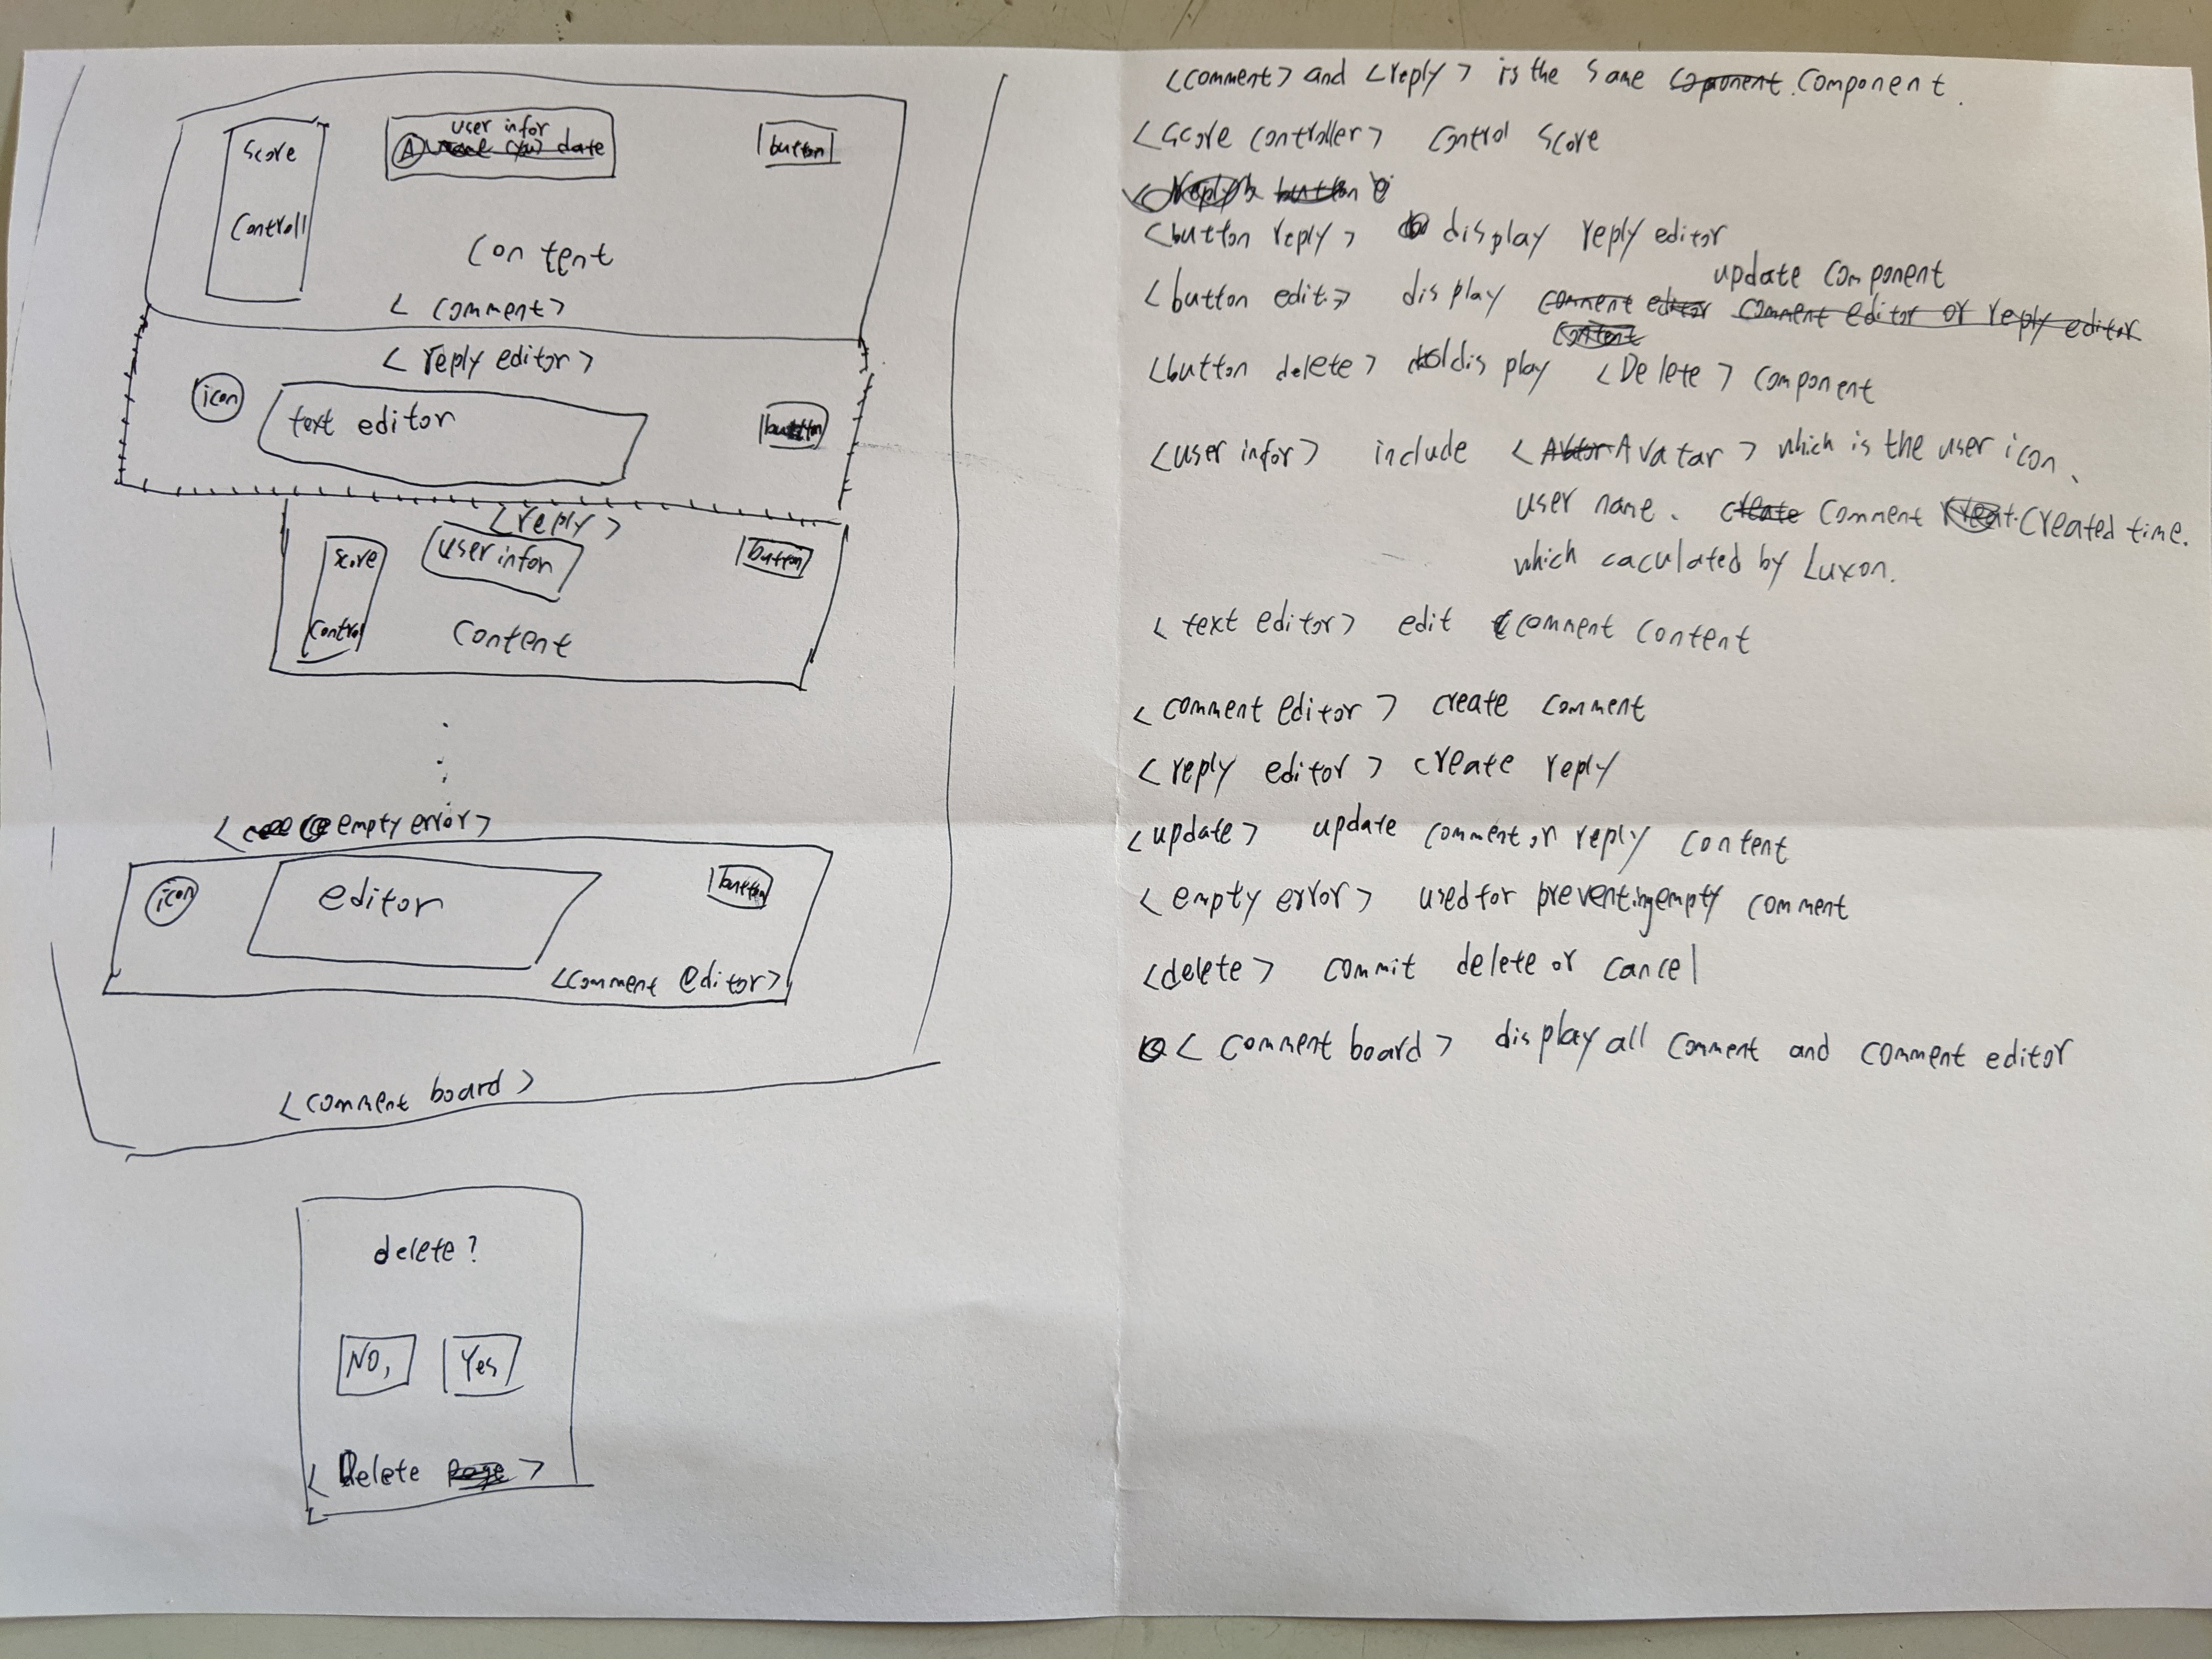 user infor
A name (you) date
Score
Controll
button
Content
< Comment >
< reply editor >
icon
text editor
button
<reply>
score
control
user infor
button
Content
< empty error>
icon
editor
button
<comment editor>
<comment board >
delete?
NO,
Yes
< Delete page >
<comment> and <reply> is the same component. Component.
<score controller> control score
<reply> button
<button reply> display reply editor
update component
<button edit> display comment editor comment editor or reply editor
content
<button delete> display <Delete> component
<user infor> include <Avator Avatar > which is the user icon.
user name. create comment created time.
which caculated by Luxon.
< text editor> edit comment content
< comment editor > create comment
< reply editor > create reply
<update> update comment or reply content
< empty error > used for preventing empty comment
<delete> commit delete or cancel
< comment board > display all comment and comment editor